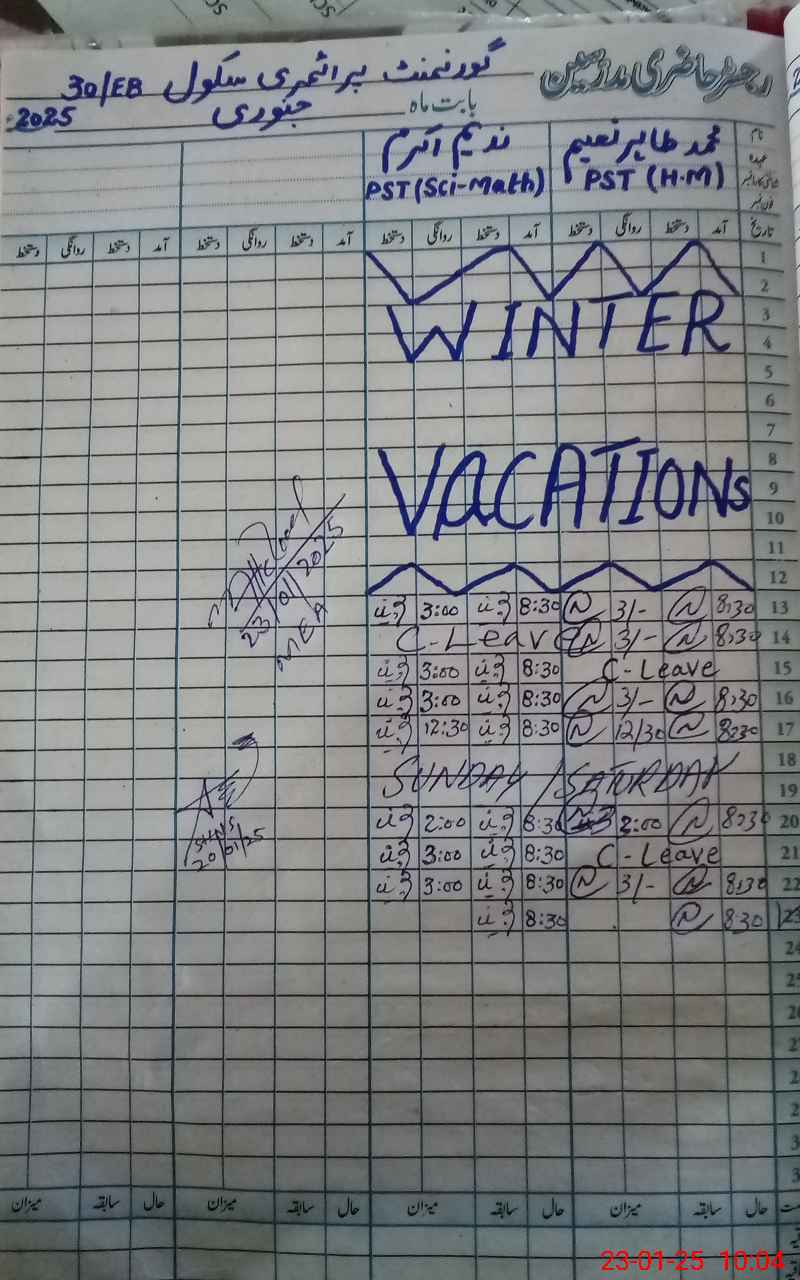 رجسٹر حاضری ملازمین
گورنمنٹ پرائمری سکول 30/EB
بابت ماہ جنوری 2025
نام محمد طاہر نعیم ندیم اکرم
عہدہ PST (H.M) PST (Sci-Math)
تاریخ آمد دستخط روانگی دستخط آمد دستخط روانگی دستخط آمد دستخط روانگی دستخط آمد دستخط روانگی دستخط
1
2
3
WINTER
4
5
6
7
8
9
VACATIONS
10
11
12
13 8:30 3/- 8:30 3:00
14 8:30 3/- C-Leave
15 C-Leave 8:30 3:00
16 8:30 3/- 8:30 3:00
17 8:30 12/30 8:30 12:30
18
SUNDAY / SATURDAY
19
20 8:30 2:00 8:30 2:00
21 C-Leave 8:30 3:00
22 8:30 3/- 8:30 3:00
23 8:30 8:30
24
23/01/2025
MEA
20/01/25
حال سابقہ میزان حال سابقہ میزان حال سابقہ میزان حال سابقہ میزان
23-01-25 10:04